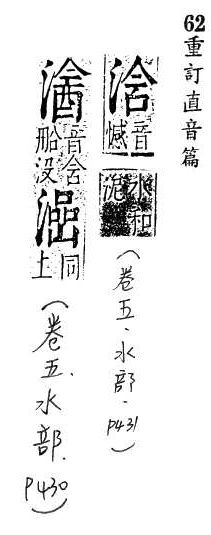 62重訂直音篇
浛音憾水和泥
(卷五.水部.P431)
音含船没同上
(卷五.水部.P430)